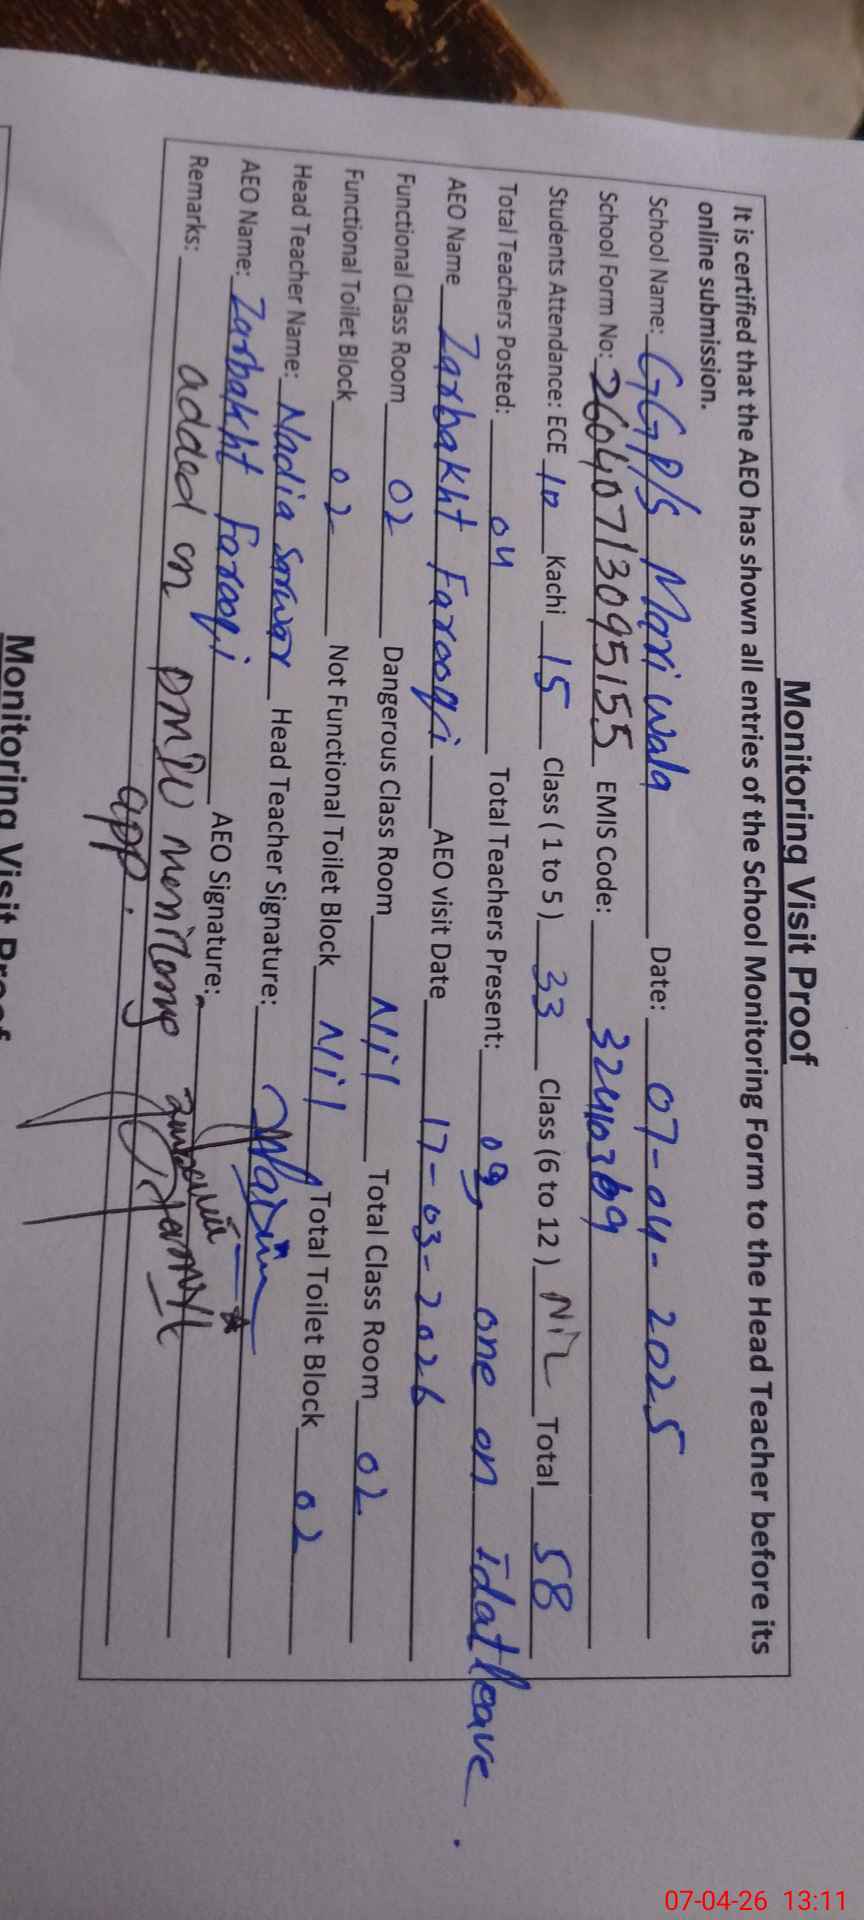 Monitoring Visit Proof
It is certified that the AEO has shown all entries of the School Monitoring Form to the Head Teacher before its
online submission.
School Name: GGP/S Mari wala Date: 07-04-2025
School Form No: 26040713095155 EMIS Code: 32410369
Students Attendance: ECE 10 Kachi 15 Class ( 1 to 5 ) 33 Class (6 to 12 ) NiL Total 58
Total Teachers Posted: 04 Total Teachers Present: 03, one on idat leave.
AEO Name Zarbakht Farooqi AEO visit Date 17-03-2026
Functional Class Room 02 Dangerous Class Room Nil Total Class Room 02
Functional Toilet Block 02 Not Functional Toilet Block Nil Total Toilet Block 02
Head Teacher Name: Nadia Sarwar Head Teacher Signature: Nadia
AEO Name: Zarbakht Farooqi AEO Signature:
Remarks: added on PMIU monitoring
app.
Monitoring Visit Proof
07-04-26 13:11